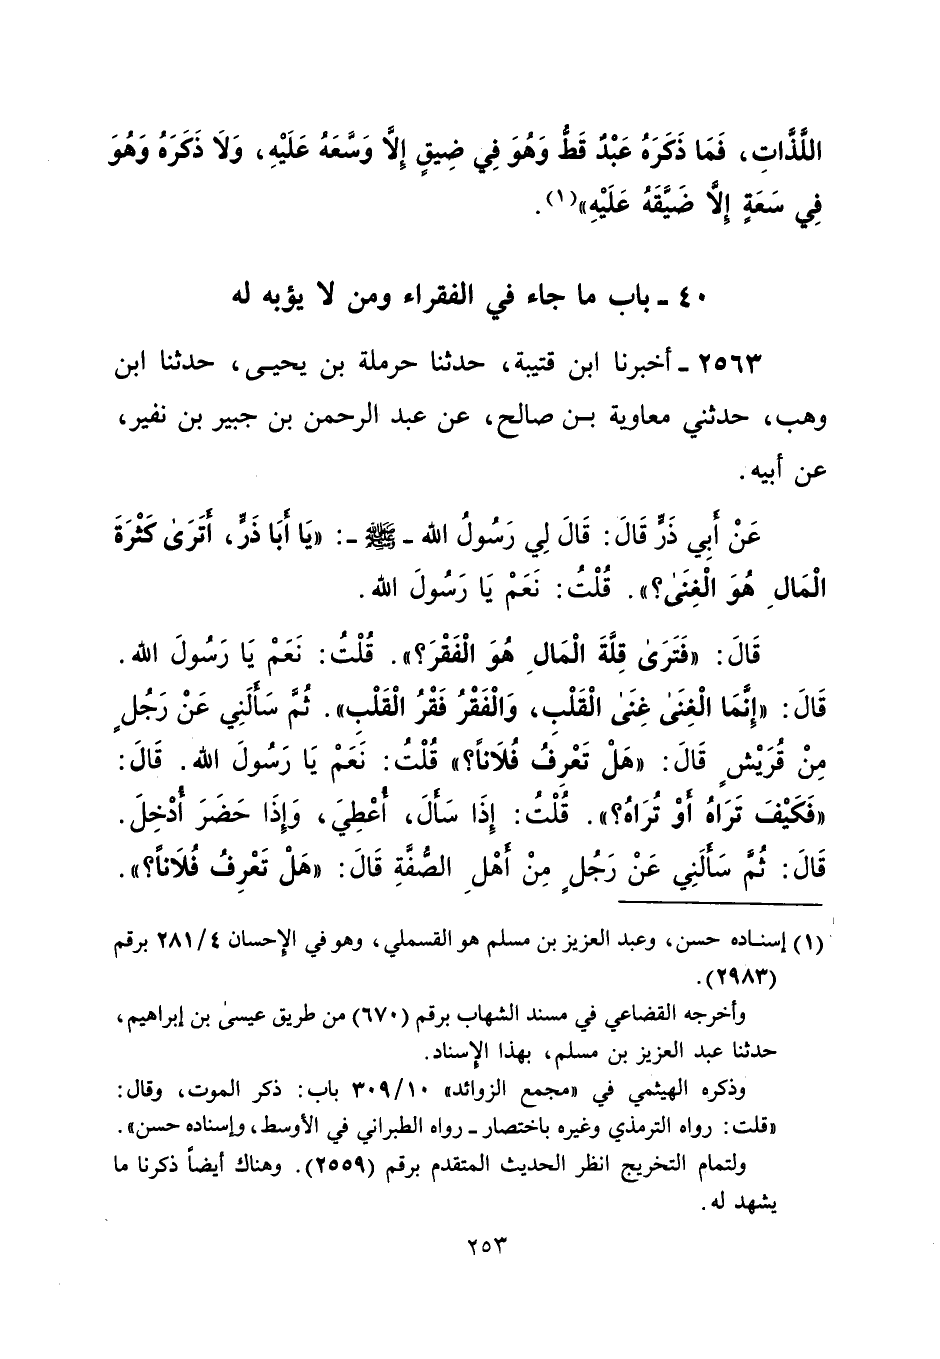 اللَّذَّاتِ، فَمَا ذَكَرَهُ عَبْدٌ قَطُّ وَهُوَ فِي ضِيقٍ إِلَّا وَسَّعَهُ عَلَيْهِ، وَلَا ذَكَرَهُ وَهُوَ
فِي سَعَةٍ إِلَّا ضَيَّقَهُ عَلَيْهِ»(١).
٤٠ - باب ما جاء في الفقراء ومن لا يؤبه له
٢٥٦٣ - أخبرنا ابن قتيبة، حدثنا حرملة بن يحيى، حدثنا ابن
وهب، حدثني معاوية بن صالح، عن عبد الرحمن بن جبير بن نفير،
عن أبيه.
عَنْ أَبِي ذَرٍّ قَالَ: قَالَ لِي رَسُولُ الله - ﷺ -: «يَا أَبَا ذَرٍّ، أَتَرَىٰ كَثْرَةَ
الْمَالِ هُوَ الْغِنَىٰ؟». قُلْتُ: نَعَمْ يَا رَسُولَ الله.
قَالَ: «فَتَرَىٰ قِلَّةَ الْمَالِ هُوَ الْفَقْرَ؟». قُلْتُ: نَعَمْ يَا رَسُولَ الله.
قَالَ: «إِنَّمَا الْغِنَىٰ غِنَىٰ الْقَلْبِ، وَالْفَقْرُ فَقْرُ الْقَلْبِ». ثُمَّ سَأَلَنِي عَنْ رَجُلٍ
مِنْ قُرَيْشٍ قَالَ: «هَلْ تَعْرِفُ فُلَاناً؟» قُلْتُ: نَعَمْ يَا رَسُولَ الله. قَالَ:
«فَكَيْفَ تَرَاهُ أَوْ تُرَاهُ؟». قُلْتُ: إِذَا سَأَلَ، أُعْطِيَ، وَإِذَا حَضَرَ أُدْخِلَ.
قَالَ: ثُمَّ سَأَلَنِي عَنْ رَجُلٍ مِنْ أَهْلِ الصُّفَّةِ قَالَ: «هَلْ تَعْرِفُ فُلَاناً؟».
(١) إسناده حسن، وعبد العزيز بن مسلم هو القسملي، وهو في الإحسان ٢٨١/٤ برقم
(٢٩٨٣).
وأخرجه القضاعي في مسند الشهاب برقم (٦٧٠) من طريق عيسىٰ بن إبراهيم،
حدثنا عبد العزيز بن مسلم، بهذا الإسناد.
وذكره الهيثمي في «مجمع الزوائد» ٣٠٩/١٠ باب: ذكر الموت، وقال:
«قلت: رواه الترمذي وغيره باختصار - رواه الطبراني في الأوسط، وإسناده حسن».
ولتمام التخريج انظر الحديث المتقدم برقم (٢٥٥٩). وهناك أيضاً ذكرنا ما
يشهد له.
٢٥٣